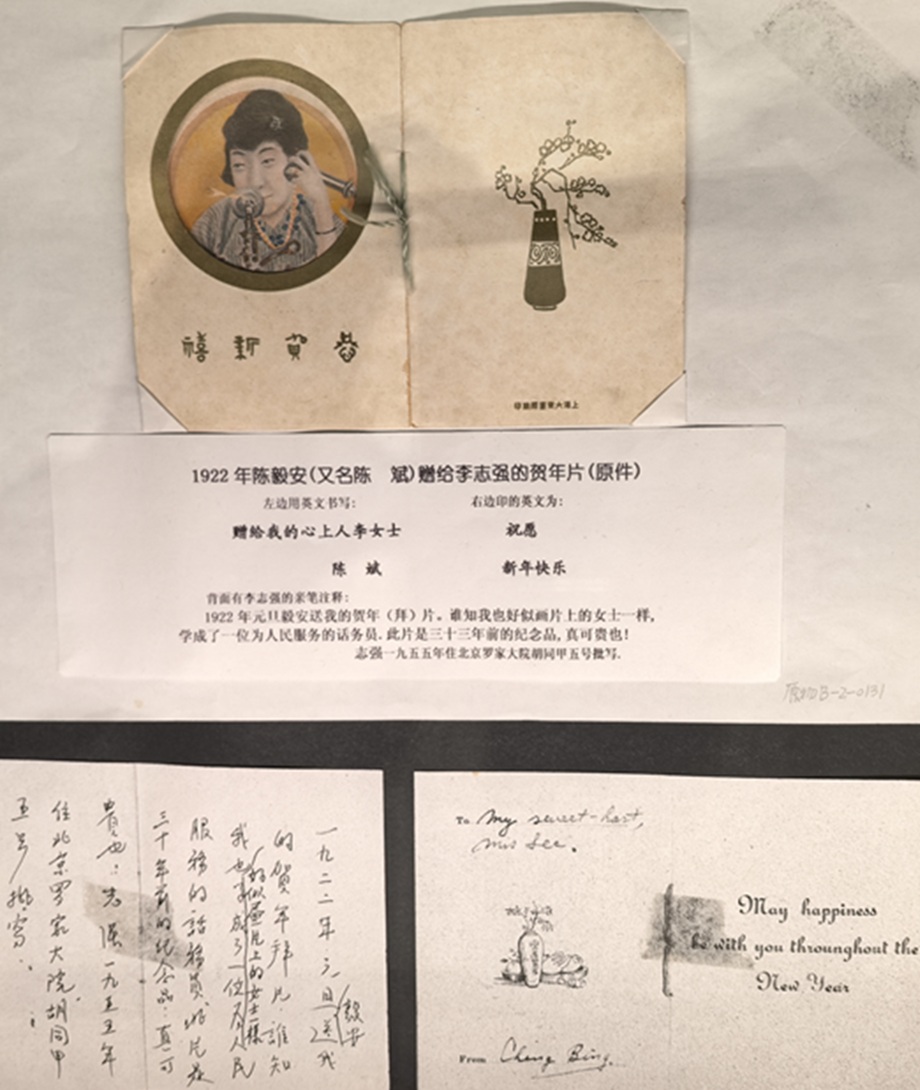 恭賀新禧
1922 年陈毅安(又名陈 斌)赠给李志强的贺年片(原件)
左边用英文书写: 右边印的英文为:
赠给我的心上人李女士 祝愿
陈 斌 新年快乐
背面有李志强的亲笔注释:
1922 年元旦毅安送我的贺年（拜）片。谁知我也好似画片上的女士一样,
学成了一位为人民服务的话务员.此片是三十三年前的纪念品,真可贵也!
志强一九五五年住北京罗家大院胡同甲五号批写.
原物B-2-0131
一九二二年元旦毅安送我
的賀年拜片.誰知
我也好似画片上的女士一樣學成了一位为人民
服務的話務員.此片是
三十年前的纪念品:真可
貴也:志强一九五五年
住北京罗家大院胡同甲
五号批写
To My sweet-hart,
mis Lee.
May happiness
be with you throunghout the
New Year
From Cheng Bing.